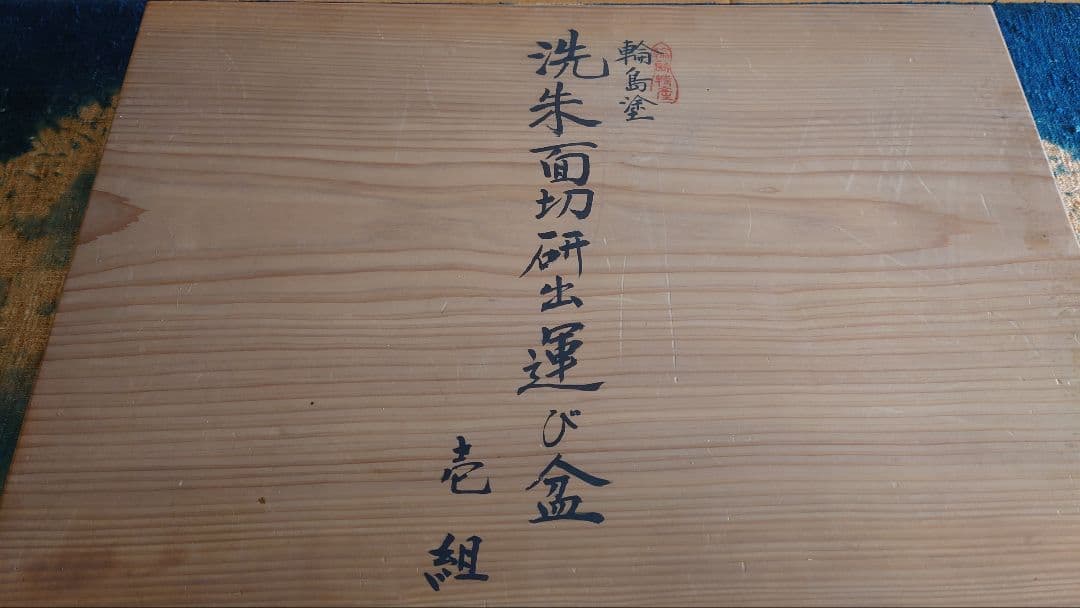 輪島塗
洗朱面切研出運び盆
壱組